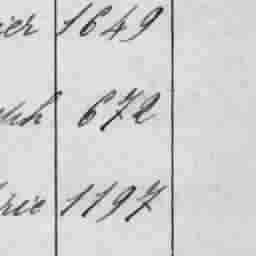 ier 1649
ph 672
rie 1197